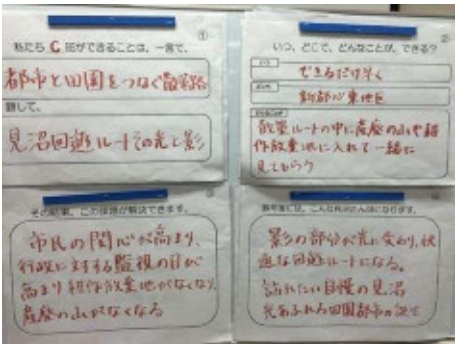 ①
私たち C 班ができることは、一言で、
都市と田園をつなぐ散策路
題して、
見沼回遊ルートその光と影
②
いつ、どこで、どんなことが、できる?
できるだけ早く
新都心東地区
散策ルートの中に産廃の山や耕
作放棄地に入れて一緒に
見てもらう
その結果、この課題が解決できます。
市民の関心が高まり、
行政に対する監視の目が
高まり耕作放棄地がなくなり、
産廃の山がなくなる
影の部分が光に変わり、快
適な回遊ルートになる。
訪れたい自慢の見沼
光あふれる田園都市の誕生